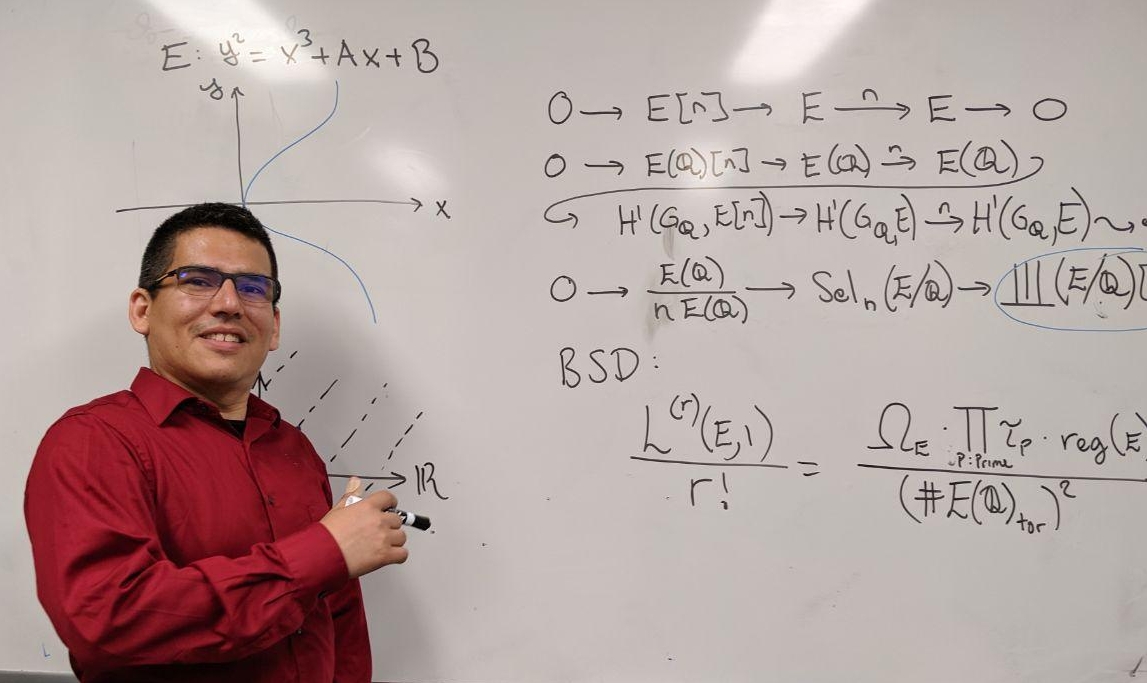 E: y² = x³ + Ax + B
y
x
0 → E[n] → E —n→ E → 0
0 → E(ℚ)[n] → E(ℚ) —n→ E(ℚ)
↪ H¹(G_ℚ, E[n]) → H¹(G_ℚ, E) —n→ H¹(G_ℚ, E) ⇝
0 → E(ℚ) / n E(ℚ) → Sel_n(E/ℚ) → Ш(E/ℚ)[
BSD:
L^(r)(E,1) / r! = Ω_E · ∏_{P:Prime} τ_p · reg(E / (#E(ℚ)_tor)²
ℝ